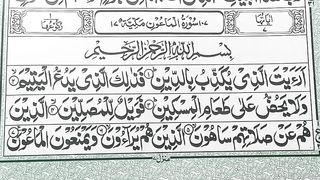 ۱۰۷ سُوْرَةُ الْمَاعُوْنِ مَكِّيَّةٌ ۱۷
بِسْمِ اللّٰهِ الرَّحْمٰنِ الرَّحِيْمِ
اَرَءَيْتَ الَّذِيْ يُكَذِّبُ بِالدِّيْنِ فَذٰلِكَ الَّذِيْ يَدُعُّ الْيَتِيْمَ
وَلَا يَحُضُّ عَلٰى طَعَامِ الْمِسْكِيْنِ فَوَيْلٌ لِّلْمُصَلِّيْنَ الَّذِيْنَ
هُمْ عَنْ صَلَاتِهِمْ سَاهُوْنَ الَّذِيْنَ هُمْ يُرَآءُوْنَ وَيَمْنَعُوْنَ الْمَاعُوْنَ